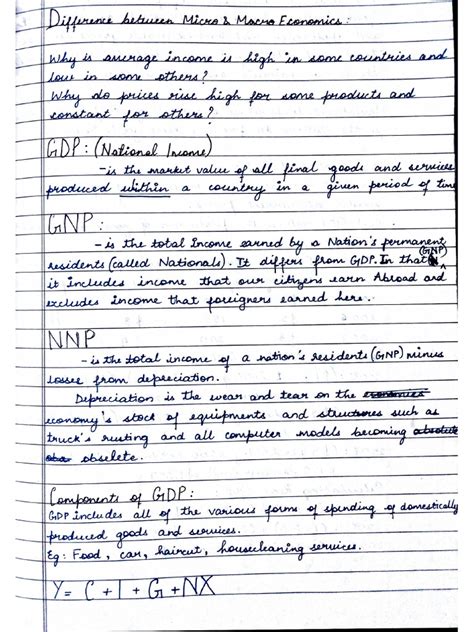 Difference between Micro & Macro Economics:
Why is average income is high in some countries and
low in some others?
Why do prices rise high for some products and
constant for others?
GDP: (National Income)
-is the market value of all final goods and services
produced within a country in a given period of time
GNP:
- is the total Income earned by a Nation's permanent
residents (called Nationals). It differs from GDP. In that (GNP)
it includes income that our citizens earn Abroad and
excludes income that foreigners earned here.
NNP
- is the total income of a nation's residents (GNP) minus
losses from depreciation.
Depreciation is the wear and tear on the
economy's stock of equipments and structures such as
truck's rusting and all computer models becoming
obselete.
Components of GDP:
GDP includes all of the various forms of spending of domestically
produced goods and services.
Eg: Food, car, haircut, housecleaning services.
Y = C + I + G + NX